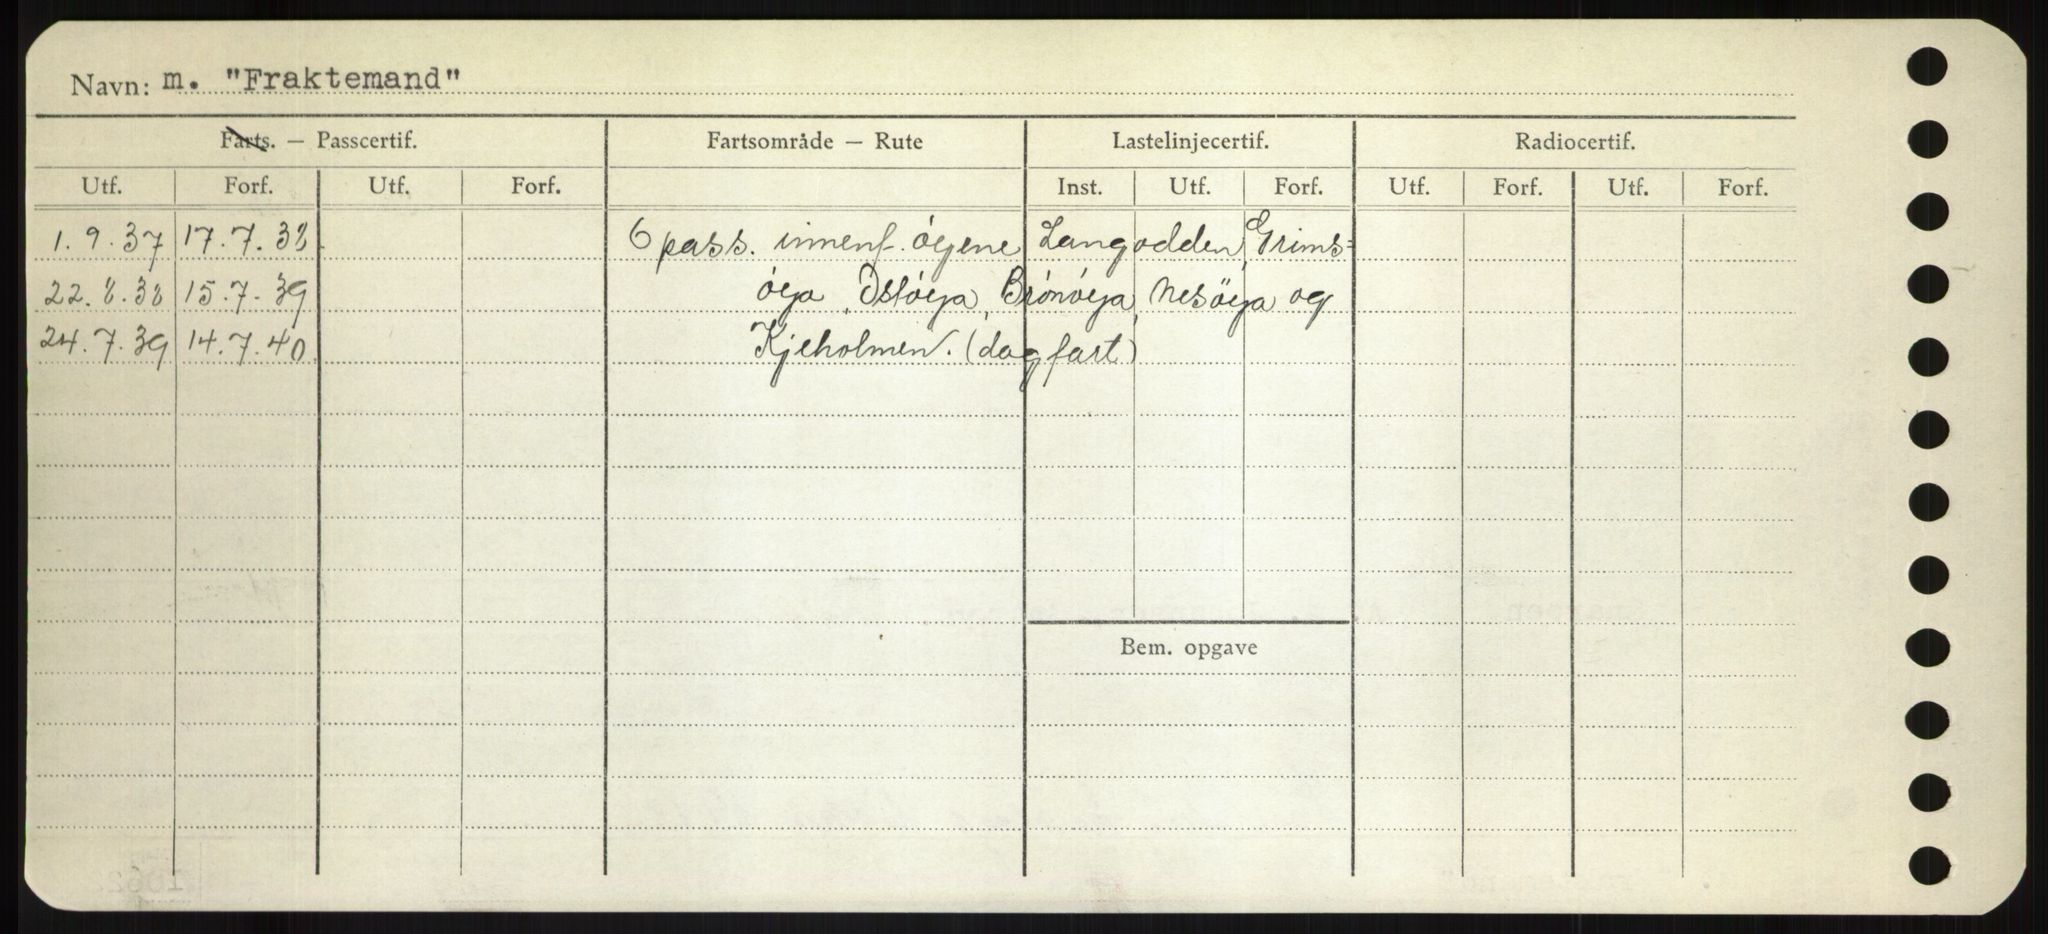 Navn: m. "Fraktemand"
Farts. — Passcertif. Fartsområde — Rute Lastelinjecertif. Radiocertif.
Utf. Forf. Utf. Forf. Inst. Utf. Forf. Utf. Forf. Utf. Forf.
1.9.37 17.7.38 6 pass. innenf. öyene Langodden, Grims-
22.8.38 15.7.39 öya, Ostöya, Brönöya, Nesöya og
24.7.39 14.7.40 Kjeholmen. (dagfart)
Bem. opgave